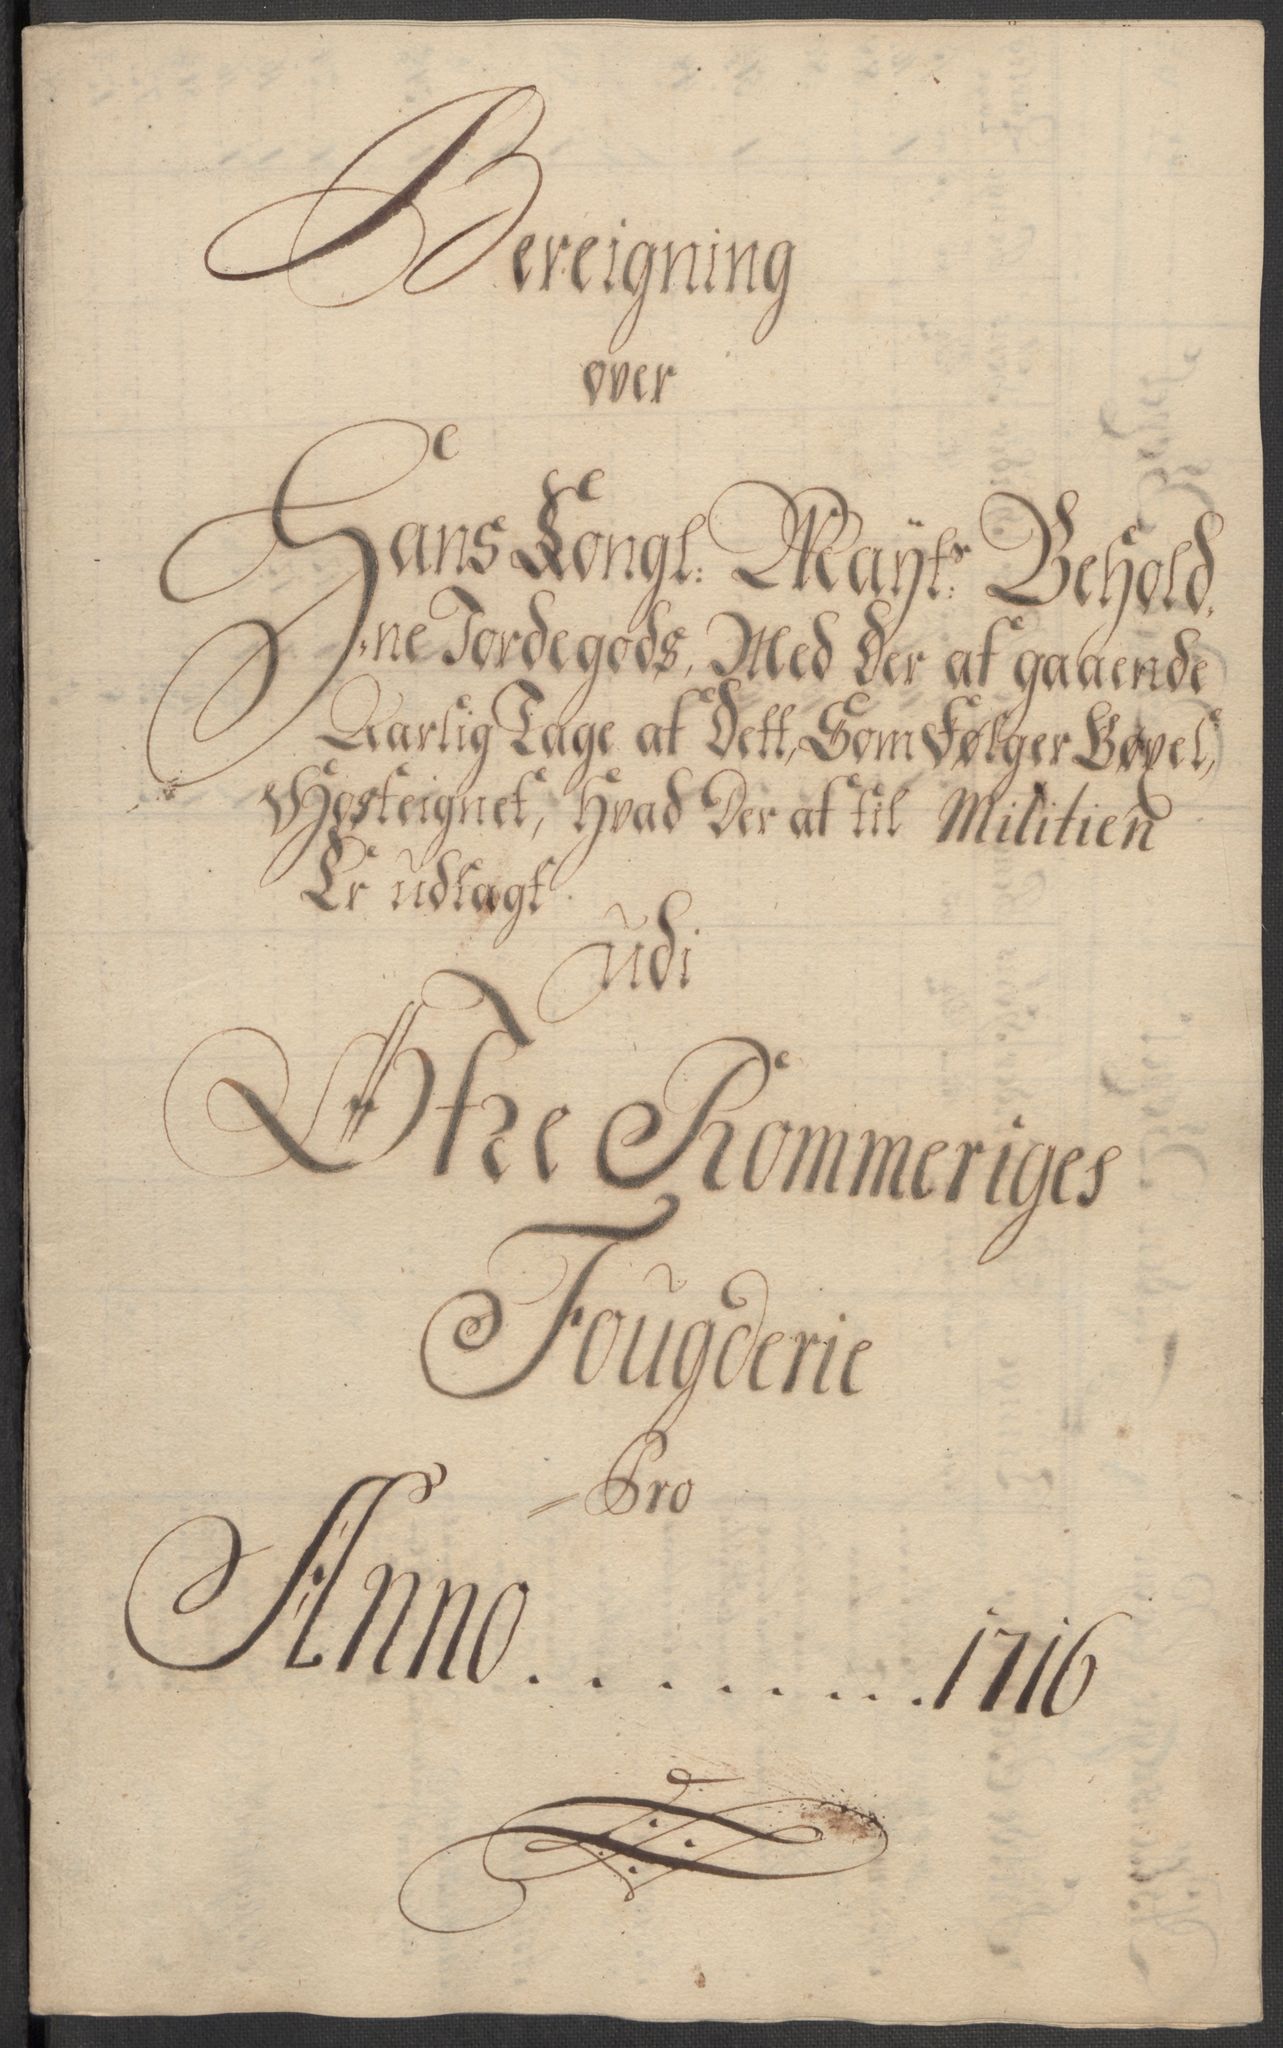 Bereigning
over
Hans Kongl: Mayts: Behold,
ne Jordegods, Med der af gaaende
Aarlig Tage af Dett, Som følger
Hosteignet, hvad Der af til Militien
Er udlagt
udi
Øfre Rommeriges
Fougderie
Pro
Anno . . . . . . . . 1716